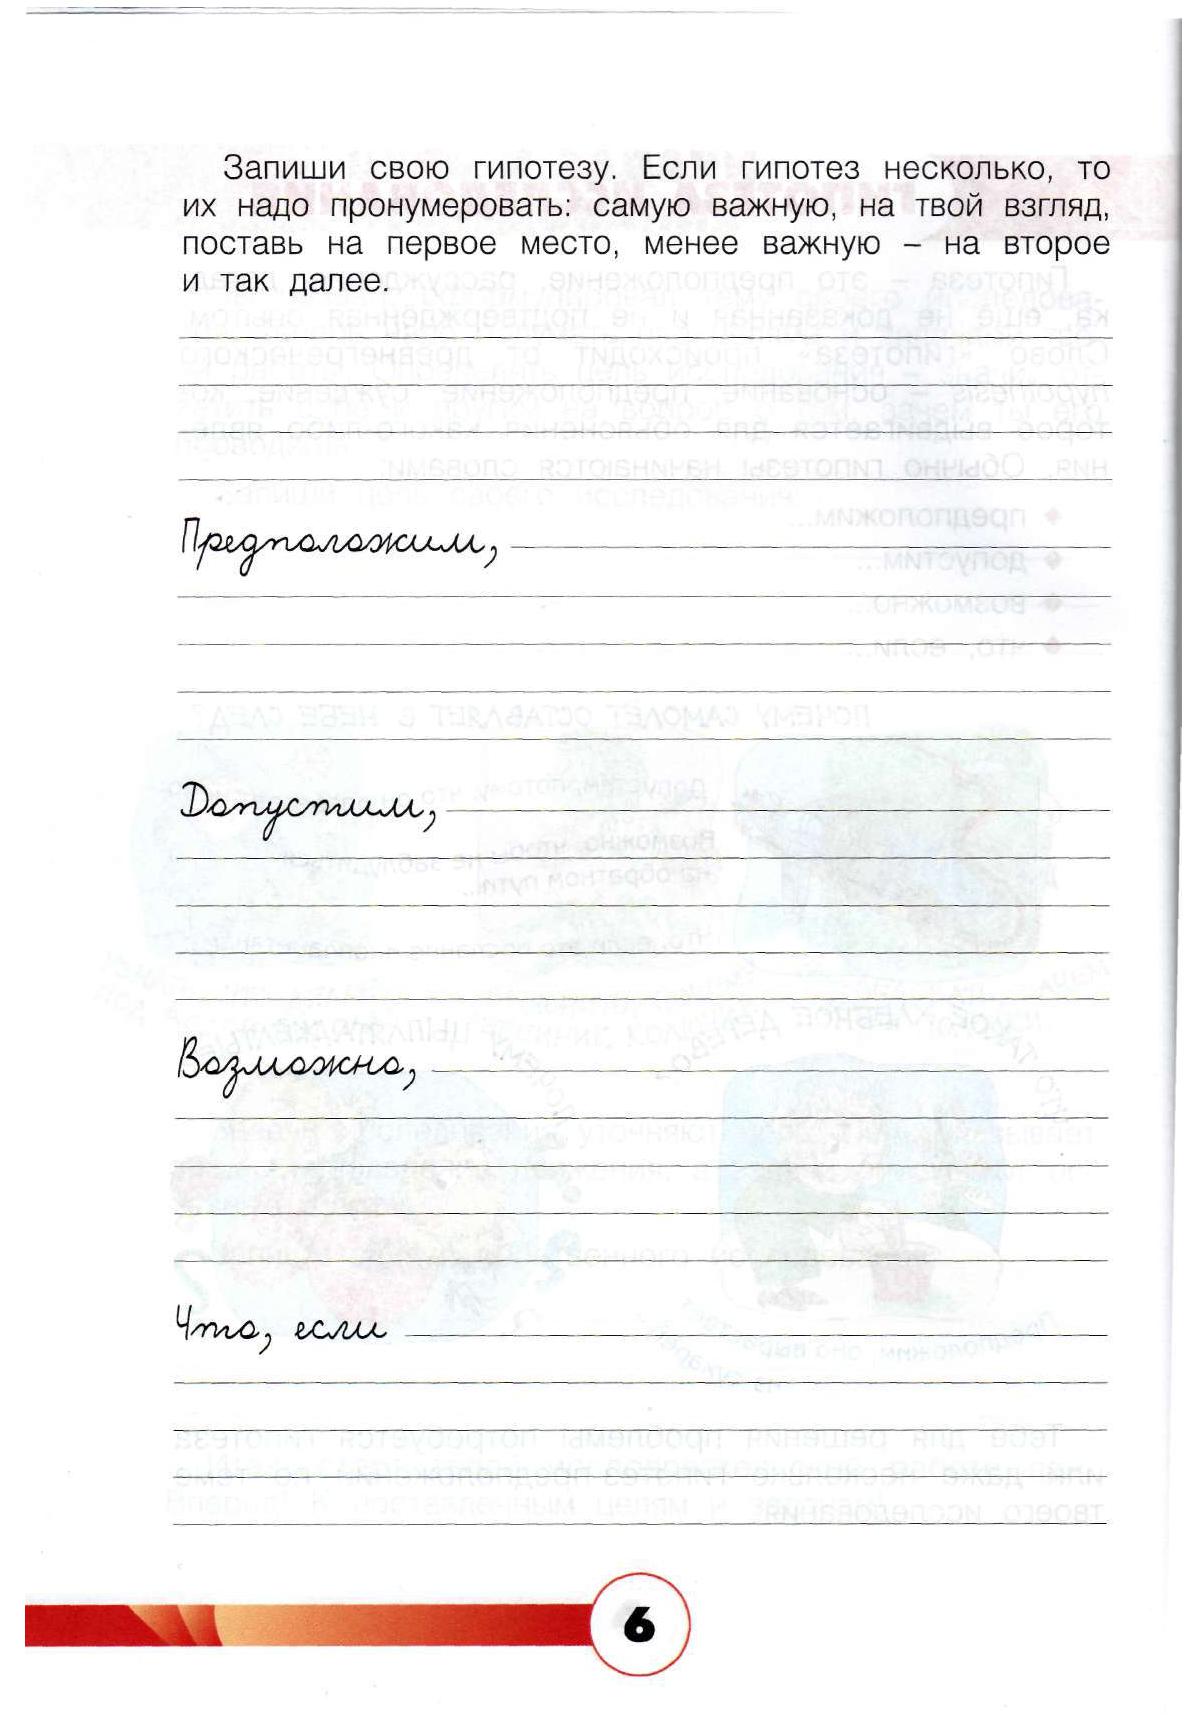 Запиши свою гипотезу. Если гипотез несколько, то
их надо пронумеровать: самую важную, на твой взгляд,
поставь на первое место, менее важную – на второе
и так далее.
Предположим,
Допустим,
Возможно,
Что, если
6